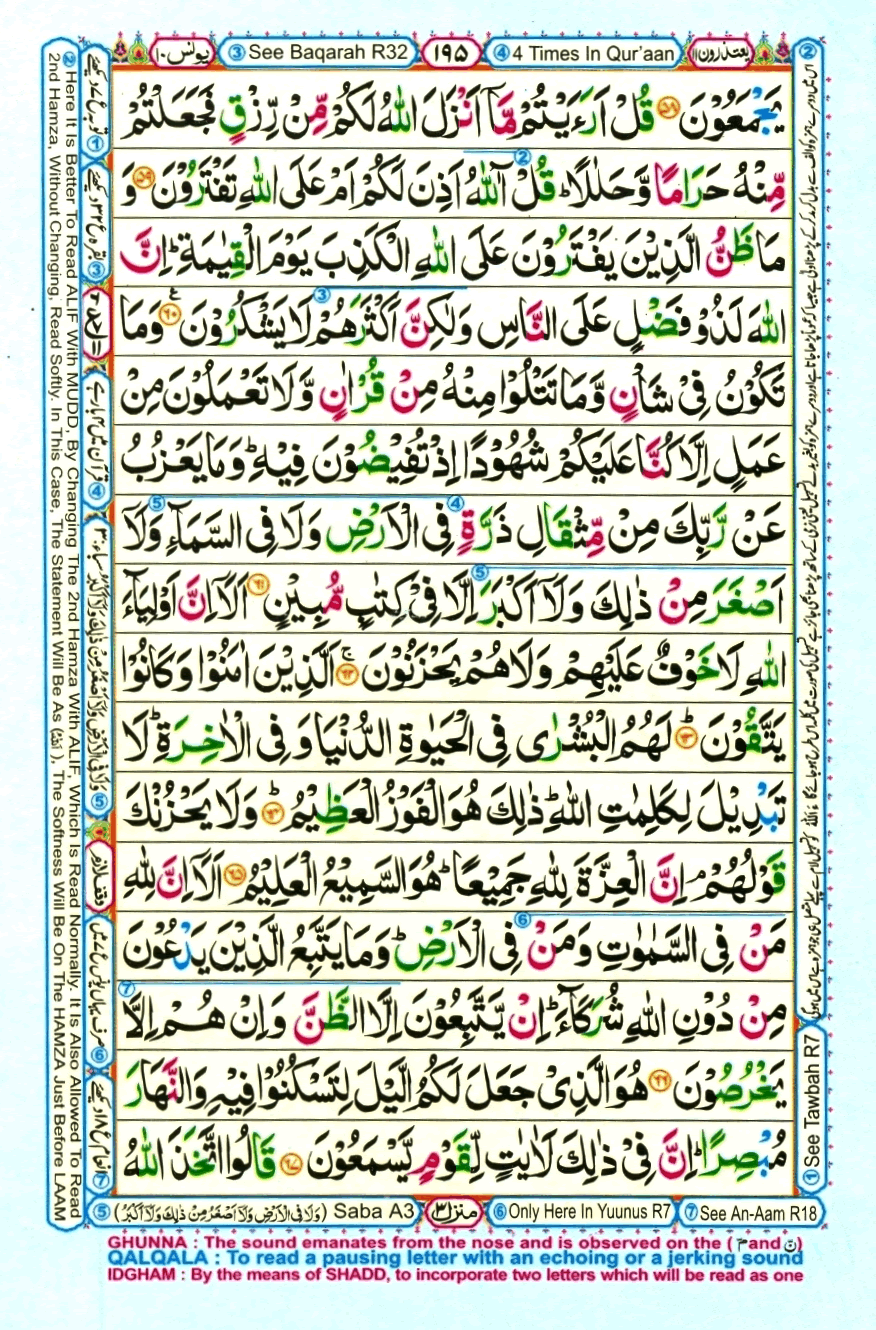 یونس ۱۰
③ See Baqarah R32
۱۹۵
④ 4 Times In Qur'aan
یعتذرون ۱۱
یَجْمَعُوْنَ ۵۸ قُلْ اَرَءَیْتُمْ مَّاۤ اَنْزَلَ اللّٰهُ لَكُمْ مِّنْ رِّزْقٍ فَجَعَلْتُمْ
مِّنْهُ حَرَامًا وَّحَلٰلًا ؕ قُلْ آٰللّٰهُ اَذِنَ لَكُمْ اَمْ عَلَی اللّٰهِ تَفْتَرُوْنَ ۵۹ وَ
مَا ظَنُّ الَّذِیْنَ یَفْتَرُوْنَ عَلَی اللّٰهِ الْكَذِبَ یَوْمَ الْقِیٰمَةِ ؕ اِنَّ
اللّٰهَ لَذُوْ فَضْلٍ عَلَی النَّاسِ وَلٰكِنَّ اَكْثَرَهُمْ لَا یَشْكُرُوْنَ ۶۰ وَمَا
تَكُوْنُ فِیْ شَاْنٍ وَّمَا تَتْلُوْا مِنْهُ مِنْ قُرْاٰنٍ وَّلَا تَعْمَلُوْنَ مِنْ
عَمَلٍ اِلَّا كُنَّا عَلَیْكُمْ شُهُوْدًا اِذْ تُفِیْضُوْنَ فِیْهِ ؕ وَمَا یَعْزُبُ
عَنْ رَّبِّكَ مِنْ مِّثْقَالِ ذَرَّةٍ فِی الْاَرْضِ وَلَا فِی السَّمَآءِ وَلَاۤ
اَصْغَرَ مِنْ ذٰلِكَ وَلَاۤ اَكْبَرَ اِلَّا فِیْ كِتٰبٍ مُّبِیْنٍ ۶۱ اَلَاۤ اِنَّ اَوْلِیَآءَ
اللّٰهِ لَا خَوْفٌ عَلَیْهِمْ وَلَا هُمْ یَحْزَنُوْنَ ۶۲ اَلَّذِیْنَ اٰمَنُوْا وَكَانُوْا
یَتَّقُوْنَ ۶۳ لَهُمُ الْبُشْرٰی فِی الْحَیٰوةِ الدُّنْیَا وَفِی الْاٰخِرَةِ ؕ لَا
تَبْدِیْلَ لِكَلِمٰتِ اللّٰهِ ؕ ذٰلِكَ هُوَ الْفَوْزُ الْعَظِیْمُ ۶۴ وَلَا یَحْزُنْكَ
قَوْلُهُمْ ۘ اِنَّ الْعِزَّةَ لِلّٰهِ جَمِیْعًا ؕ هُوَ السَّمِیْعُ الْعَلِیْمُ ۶۵ اَلَاۤ اِنَّ لِلّٰهِ
مَنْ فِی السَّمٰوٰتِ وَمَنْ فِی الْاَرْضِ ؕ وَمَا یَتَّبِعُ الَّذِیْنَ یَدْعُوْنَ
مِنْ دُوْنِ اللّٰهِ شُرَكَآءَ ؕ اِنْ یَّتَّبِعُوْنَ اِلَّا الظَّنَّ وَاِنْ هُمْ اِلَّا
یَخْرُصُوْنَ ۶۶ هُوَ الَّذِیْ جَعَلَ لَكُمُ الَّیْلَ لِتَسْكُنُوْا فِیْهِ وَالنَّهَارَ
مُبْصِرًا ؕ اِنَّ فِیْ ذٰلِكَ لَاٰیٰتٍ لِّقَوْمٍ یَّسْمَعُوْنَ ۶۷ قَالُوا اتَّخَذَ اللّٰهُ
② Here It Is Better To Read ALIF With MUDD, By Changing The 2nd Hamza With ALIF, Which Is Read Normally. It Is Also Allowed To Read
2nd Hamza, Without Changing, Read Softly. In This Case, The Statement Will Be As ( ), The Softness Will Be On The HAMZA Just Before LAAM
① See Tawbah R7
⑤ (وَلَا فِی الْاَرْضِ وَلَاۤ اَصْغَرُ مِنْ ذٰلِكَ وَلَاۤ اَكْبَرُ) Saba A3
منزل ۳
⑥ Only Here In Yuunus R7
⑦ See An-Aam R18
GHUNNA : The sound emanates from the nose and is observed on the ( م and ن )
QALQALA : To read a pausing letter with an echoing or a jerking sound
IDGHAM : By the means of SHADD, to incorporate two letters which will be read as one